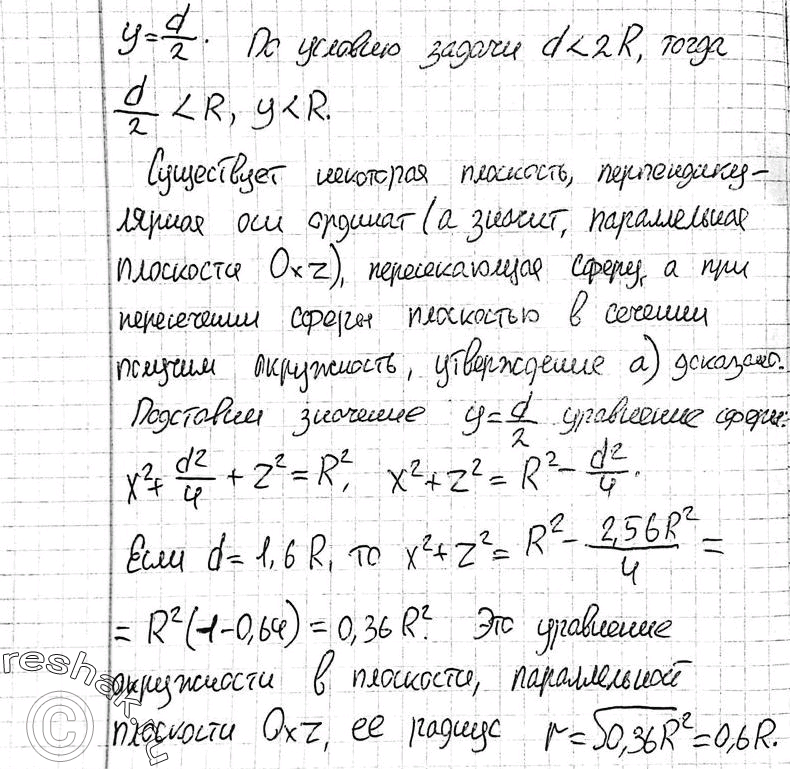 y = d/2. По условию задачи d < 2R, тогда
d/2 < R, y < R.
Существует некоторая плоскость, перпендику-
лярная оси ординат (а значит, параллельная
плоскости Oxz), пересекающая сферу, а при
пересечении сферы плоскостью в сечении
получим окружность, утверждение а) доказано.
Подставим значение y = d/2 уравнение сферы:
x² + d²/4 + z² = R², x² + z² = R² - d²/4.
Если d = 1,6R, то x² + z² = R² - 2,56R²/4 =
= R²(1-0,64) = 0,36R². Это уравнение
окружности в плоскости, параллельной
плоскости Oxz, ее радиус r = √0,36R² = 0,6R.
reshak.ru
©